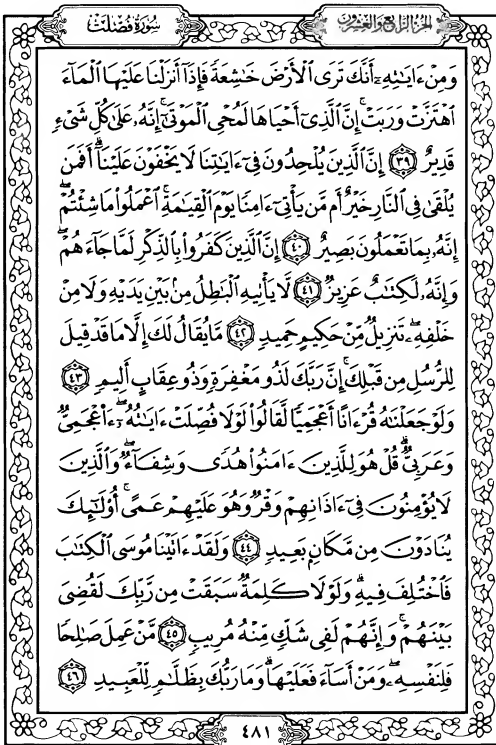 سُورَةُ فُصِّلَتْ
الجُزءُ الرَّابِعُ وَالعِشرُونَ
وَمِنْ ءَايَـٰتِهِۦٓ أَنَّكَ تَرَى ٱلْأَرْضَ خَـٰشِعَةً فَإِذَآ أَنزَلْنَا عَلَيْهَا ٱلْمَآءَ
ٱهْتَزَّتْ وَرَبَتْ ۚ إِنَّ ٱلَّذِىٓ أَحْيَاهَا لَمُحْىِ ٱلْمَوْتَىٰٓ ۚ إِنَّهُۥ عَلَىٰ كُلِّ شَىْءٍ
قَدِيرٌ ٣٩ إِنَّ ٱلَّذِينَ يُلْحِدُونَ فِىٓ ءَايَـٰتِنَا لَا يَخْفَوْنَ عَلَيْنَآ ۗ أَفَمَن
يُلْقَىٰ فِى ٱلنَّارِ خَيْرٌ أَم مَّن يَأْتِىٓ ءَامِنًا يَوْمَ ٱلْقِيَـٰمَةِ ۚ ٱعْمَلُوا۟ مَا شِئْتُمْ ۖ
إِنَّهُۥ بِمَا تَعْمَلُونَ بَصِيرٌ ٤٠ إِنَّ ٱلَّذِينَ كَفَرُوا۟ بِٱلذِّكْرِ لَمَّا جَآءَهُمْ ۖ
وَإِنَّهُۥ لَكِتَـٰبٌ عَزِيزٌ ٤١ لَّا يَأْتِيهِ ٱلْبَـٰطِلُ مِنۢ بَيْنِ يَدَيْهِ وَلَا مِنْ
خَلْفِهِۦ ۖ تَنزِيلٌ مِّنْ حَكِيمٍ حَمِيدٍ ٤٢ مَّا يُقَالُ لَكَ إِلَّا مَا قَدْ قِيلَ
لِلرُّسُلِ مِن قَبْلِكَ ۚ إِنَّ رَبَّكَ لَذُو مَغْفِرَةٍ وَذُو عِقَابٍ أَلِيمٍ ٤٣
وَلَوْ جَعَلْنَـٰهُ قُرْءَانًا أَعْجَمِيًّا لَّقَالُوا۟ لَوْلَا فُصِّلَتْ ءَايَـٰتُهُۥٓ ۖ ءَا۬عْجَمِىٌّ
وَعَرَبِىٌّ ۗ قُلْ هُوَ لِلَّذِينَ ءَامَنُوا۟ هُدًى وَشِفَآءٌ ۖ وَٱلَّذِينَ
لَا يُؤْمِنُونَ فِىٓ ءَاذَانِهِمْ وَقْرٌ وَهُوَ عَلَيْهِمْ عَمًى ۚ أُو۟لَـٰٓئِكَ
يُنَادَوْنَ مِن مَّكَانٍۭ بَعِيدٍ ٤٤ وَلَقَدْ ءَاتَيْنَا مُوسَى ٱلْكِتَـٰبَ
فَٱخْتُلِفَ فِيهِ ۗ وَلَوْلَا كَلِمَةٌ سَبَقَتْ مِن رَّبِّكَ لَقُضِىَ
بَيْنَهُمْ ۚ وَإِنَّهُمْ لَفِى شَكٍّ مِّنْهُ مُرِيبٍ ٤٥ مَّنْ عَمِلَ صَـٰلِحًا
فَلِنَفْسِهِۦ ۖ وَمَنْ أَسَآءَ فَعَلَيْهَا ۗ وَمَا رَبُّكَ بِظَلَّـٰمٍ لِّلْعَبِيدِ ٤٦
٤٨١